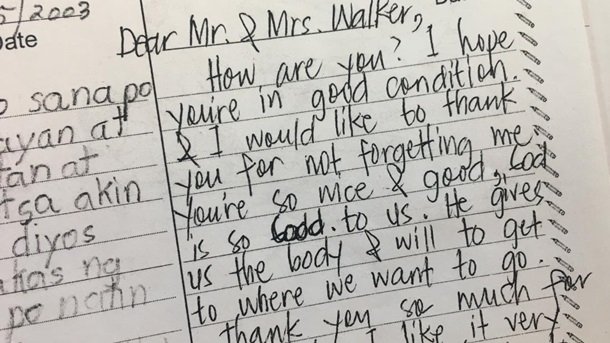 5/2003
ate
o sana po
ayan at
tan at
tsa akin
diyos
has ng
po natin
Dear Mr. & Mrs. Walker,
How are you? I hope
you're in good condition.
& I would like to thank
you for not forgetting me
You're so nice & good, God
is so Good. to us. He gives
us the body & will to get
to where we want to go.
thank you so much for
I like it very